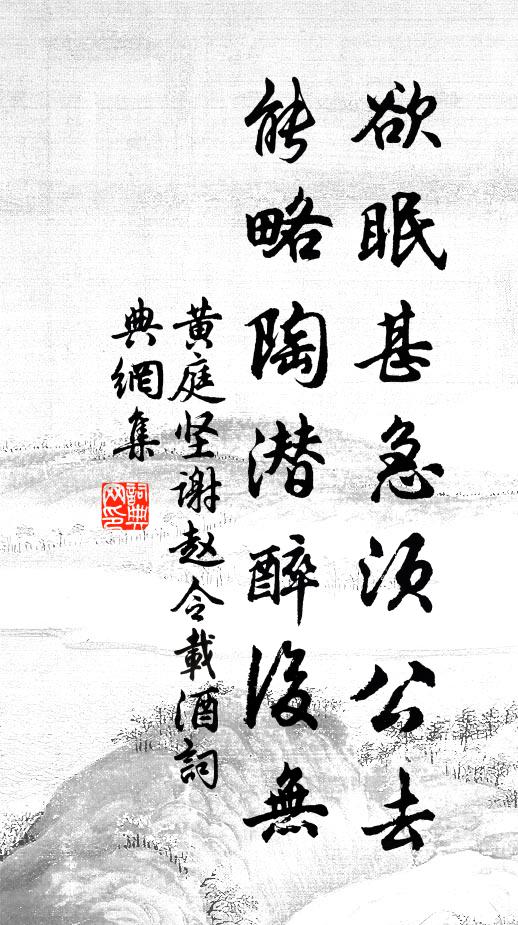 欲眠甚急须公去
能略陶潜醉后無
黄庭坚谢赵令載酒詞
典網集
詞典網印